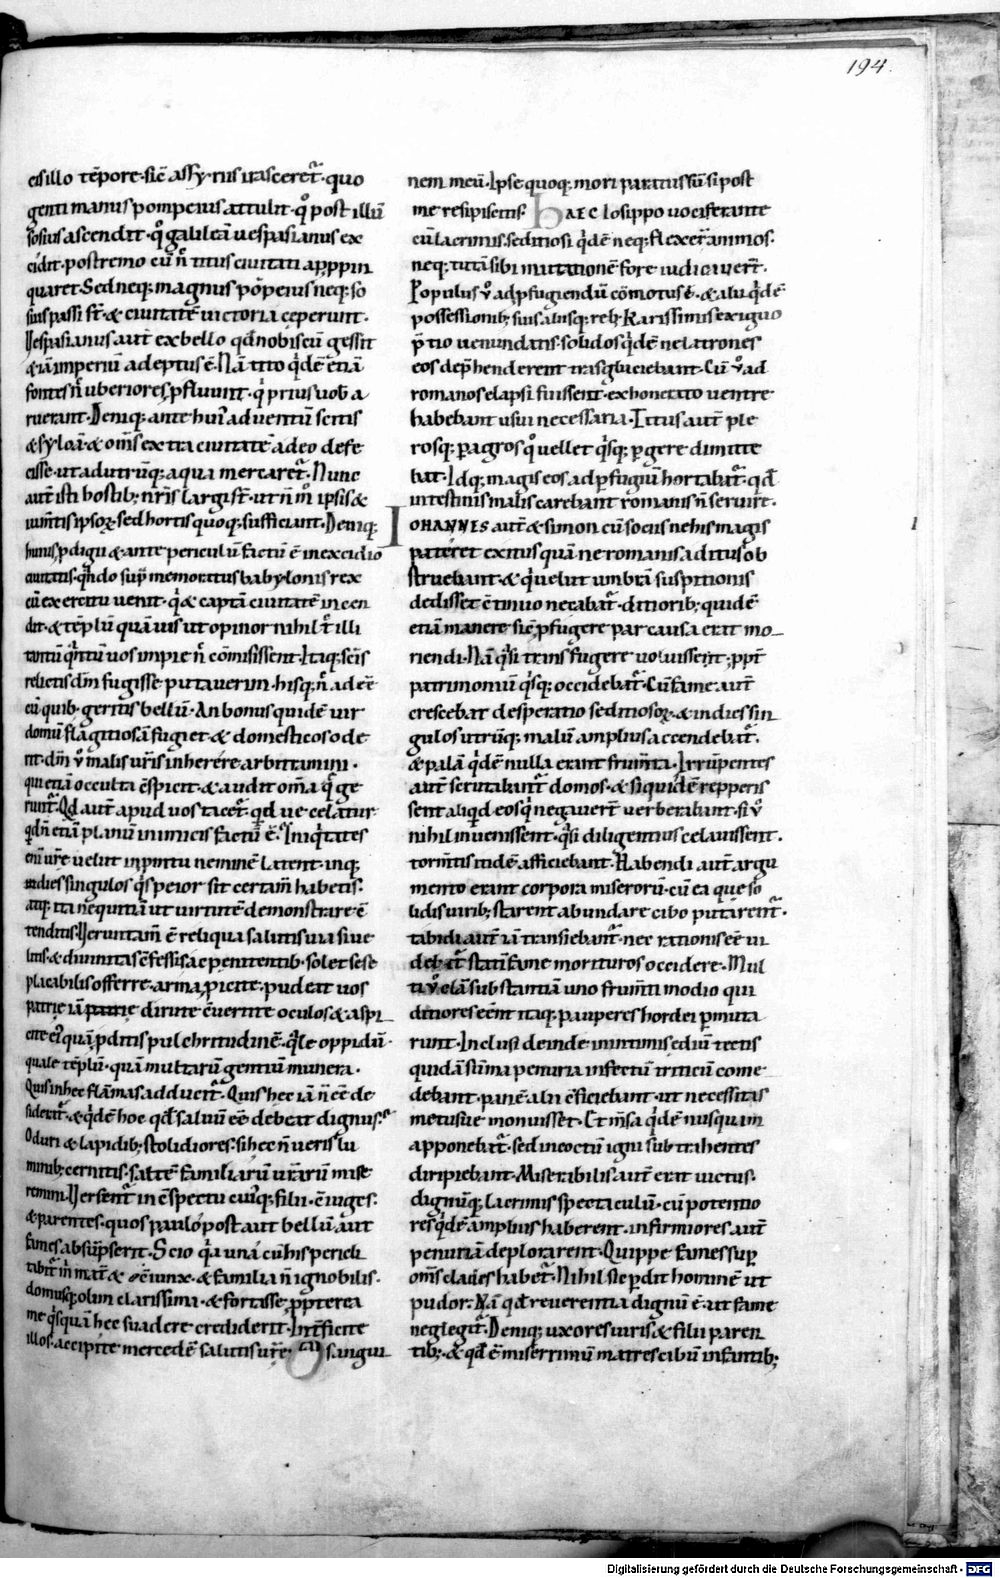 194.
cis illo tēpore. sic̄ assyriis irasceret᷑. quo
genti manus pompeius attulit. qđ post illū
sosius ascendit. qđ galileā uespasianus ex
cidit. postremo cū ñ titus ciuitati appin
quaret. Sed neq; magnus pōpeius neq; so
sius passi st̄. & ciuitatē uictoria ceperunt.
Vespasianus aut̄ ex bello qđ nobiscū gessit
& iā imperiū adeptus ē. Nā tito qͥdē etiā
fontes ñ uberiores pfluunt. qͥ prius uob̄ a
ruerant. Deniq; ante huiꝰ aduentū scitis
& syloā & om̄s extra ciuitatē adeo defe
cisse. ut ad utrūq; aqua mercaret᷑. Nunc
aut̄ isti hostib; nr̄is largi st̄. ut ñ m̊ ipsis &
ium̄tis ipsoꝝ. sed hortis quoq; sufficiant. Deniq;
huius pdigii & ante periculū factū ē in excidio
ciuitatis. qͣndo sup memoratus babylonis rex
cū exercitu uenit. qͥ & captā ciuitatē incen
dit. & tēplū quāuis ut opinor nihil t̄ illi
tantū qͣntū uos impie ñ cōmisissent. Itaq; scīs
relictis dm̄ fugisse putauerim. hisq; ñ adeē
cū quib; geritis bellū. An bonus quidē uir
domū flagitiosā fugiet & domesticos ode
rit. dm̄ ꝟ malis ur̄is inherere arbitramini.
qui etiā occulta c̄spicit. & audit om̄a qͥ ge
runt᷑. Qđ aut̄ apud uos tacet᷑. qđ ue celatur
qđñ etiā planū inimicis factū ē. Iniqͥtates
eni ur̄e uelut in pintu neminē latent. inq;
indies singulos qͥs peior sit certam̄ habetis.
atq; ita nequitiā ut uirtutē demonstrare. c̄
tenditis. Veruntam̄ ē reliqua salutis uia si ue
litis. & diuinitas c̄fessis ac penitentib; solet se se
placabilis offerre. arma picite. pudeat uos
patrię iā patrię dirute. c̄uertite oculos & aspi
cite eiꝰ quā pditis pulchritudinē. qͣle oppidū.
quale tēplū. quā multarū gentiū munera.
Quis in hec flāmas adducit᷑. Quis hec iā ñ eē de
siderat᷑. & qͥdē hoc qđ saluū eē debeat dignius.
O duri & lapidib; stolidiores. si hec ñ ueris lu
minib; cernitis. saltē familiarū ur̄arū mise
remini. Versent᷑ in c̄spectu cuiꝰq; filii. c̄iuges.
& parentes. quos paulo post aut bellū aut
fames absūpserit. Scio qͥa una cū his pericli
tabit᷑ m̄ mat̄ & c̄iunx. & familia ñ ignobilis.
domusq; olim clarissima. & fortasse ppterea
me qͥsquā hec suadere crediderit. Int̄ficite
illos. accipite mercedē salutis ur̄e. sangui
nem meū. Ipse quoq; mori paratus sū. si post
me resipiscitis. HAEC Iosippo uociferante
cū lacrimis. seditiosi qͥdē neq; flexer̄ animos.
neq; tutā sibi mutationē fore iudicauer̄.
Populus ꝟ ad pfugiendū cōmotus ē. & alii qͥdē
possessionib; suis. aliisq; reb; karissimis exiguo
p̄tio uenundatis. solidos qͥdē ne latrones
eos dep̄henderent trasglutiebant. Cū ꝟ ad
romanos elapsi fuissent. exhonerato uentre
habebant usui necessaria. Titus aut̄ ple
rosq; p agros qͦ uellet qͥsq; p gere dimitte
bat. Idq; magis eos ad pfugiū hortabat᷑. qđ
intestinis malis carebant romanis ñ seruire.
IOHANNES aut̄ & simon cū sociis ne his magis
pateret exitus quā ne romanis aditus ob
struebant. & qͥ uelut umbrā suspitionis
dedisset c̄tinuo necabat᷑. ditiorib; quidē
etiā manere sic̄ pfugere par causa erat mo
riendi. Nā qͣsi transfugere uoluissent. ppt̄
patrimoniū qͥsq; occidebat᷑. Cū fame aut̄
crescebat desperatio seditiosoꝝ. & indies sin
gulos utrūq; malū amplius accendebat᷑.
& palā qͥdē nulla erant frum̄ta. Irrūpentes
aut̄ scrutabant᷑ domos. & siquidē repperis
sent aliqđ. eos qͥ negauer̄t uerberabant. si ꝟ
nihil inuenissent. qͣsi diligentius celauissent.
torm̄tis itidē afficiebant. Habendi aut̄ argu
mento erant corpora miserorū. cū ea que so
lidis uirib; starent abundare cibo putarent᷑.
tabidi aut̄ iā transiebant᷑. nec rationis eē ui
debat᷑ statī fame morituros occidere. Mul
ti ꝟ clā substantiā uno frum̄ti modio qui
ditiores eēnt. itaq; pauperes hordei pmuta
runt. Inclusi deinde intimis ediū tectis
quidā sūma penuria infectū triticū come
debant. panē alii c̄ficiebant. ut necessitas
metusue monuisset. Et m̄sa qͥdē nusquam
apponebat᷑. sed incoctū igni subtrahentes
diripiebant. Miserabilis aut̄ erat uictus.
dignūq; lacrimis spectaculū. cū potentio
res qͥdē amplius haberent. infirmiores aut̄
penuriā deplorarent. Quippe fames sup
om̄s clades habet᷑. Nihil sic pdit hominē ut
pudor. Nā qđ reuerentia dignū ē. ut fame
neglegit᷑. Deniq; uxores uiris & filii paren
tib;. & qđ ē miserrimū matres cibū infantib;
Digitalisierung gefördert durch die Deutsche Forschungsgemeinschaft - DFG